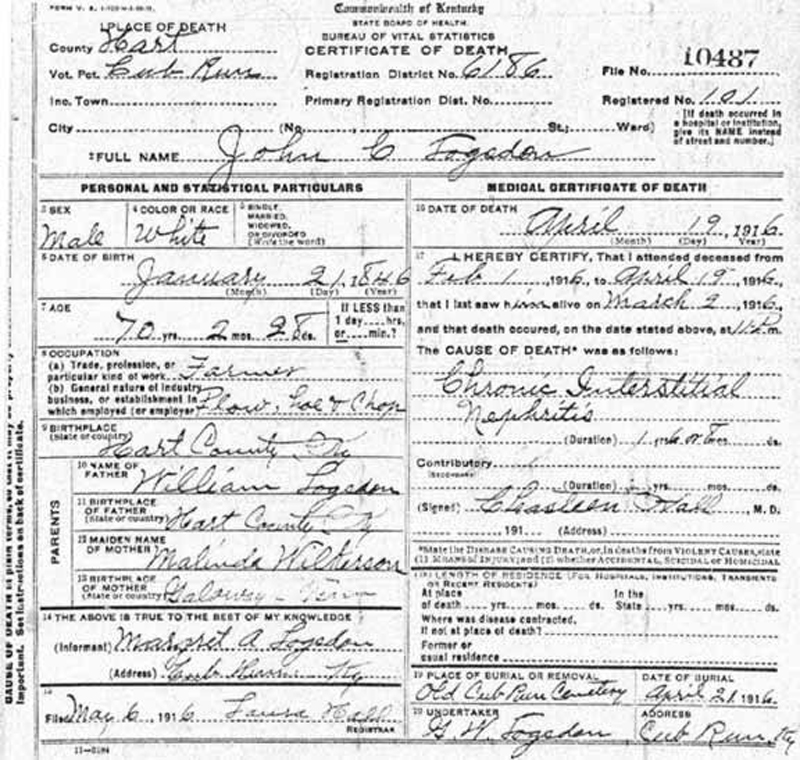 Commonwealth of Kentucky
STATE BOARD OF HEALTH
BUREAU OF VITAL STATISTICS
CERTIFICATE OF DEATH
1 PLACE OF DEATH
County Hart
Vot. Pct. Cub Run
Registration District No. 6186
File No. 10487
Inc. Town
Primary Registration Dist. No.
Registered No. 101
City (No. St.; Ward)
[If death occurred in a hospital or institution, give its NAME instead of street and number.]
2 FULL NAME John C Logsdon
PERSONAL AND STATISTICAL PARTICULARS
3 SEX Male
4 COLOR OR RACE White
5 SINGLE, MARRIED, WIDOWED, OR DIVORCED (Write the word)
6 DATE OF BIRTH
January 21, 1846
(Month) (Day) (Year)
7 AGE
70 yrs. 2 mos. 28 ds.
If LESS than 1 day....hrs. or.....min.?
8 OCCUPATION
(a) Trade, profession, or particular kind of work Farmer
(b) General nature of industry, business, or establishment in which employed (or employer) Plow, hoe & Chop
9 BIRTHPLACE
(State or country) Hart County Ky
PARENTS
10 NAME OF FATHER William Logsdon
11 BIRTHPLACE OF FATHER
(State or country) Hart County Ky
12 MAIDEN NAME OF MOTHER Malinda Wilkerson
13 BIRTHPLACE OF MOTHER
(State or country)
14 THE ABOVE IS TRUE TO THE BEST OF MY KNOWLEDGE
(Informant) Margret A Logsdon
(Address) Cub Run Ky
15
Filed May 6, 1916 Laura Hall
REGISTRAR
11-3184
MEDICAL CERTIFICATE OF DEATH
16 DATE OF DEATH
April 19, 1916
(Month) (Day) (Year)
17 I HEREBY CERTIFY, That I attended deceased from
Feb 1, 1916, to April 19, 1916,
that I last saw him alive on March 2, 1916,
and that death occured, on the date stated above, at m.
The CAUSE OF DEATH* was as follows:
Chronic Interstitial
Nephritis
(Duration) 1 yrs. 6 mos. ds.
Contributory
(SECONDARY)
(Duration) yrs. mos. ds.
(Signed) Hall M. D.
, 191 (Address)
*State the DISEASE CAUSING DEATH, or, in deaths from VIOLENT CAUSES, state
(1) MEANS OF INJURY; and (2) whether ACCIDENTAL, SUICIDAL or HOMICIDAL
18 LENGTH OF RESIDENCE (FOR HOSPITALS, INSTITUTIONS, TRANSIENTS OR RECENT RESIDENTS)
At place of death yrs. mos. ds. In the State yrs. mos. ds.
Where was disease contracted,
If not at place of death?
Former or
usual residence
19 PLACE OF BURIAL OR REMOVAL
Old Cub Run Cemetery
DATE OF BURIAL
April 21 1916
20 UNDERTAKER
G. W. Logsdon
ADDRESS
Cub Run, Ky
CAUSE OF DEATH in plain terms, so that it may be properly
important. See instructions on back of certificate.